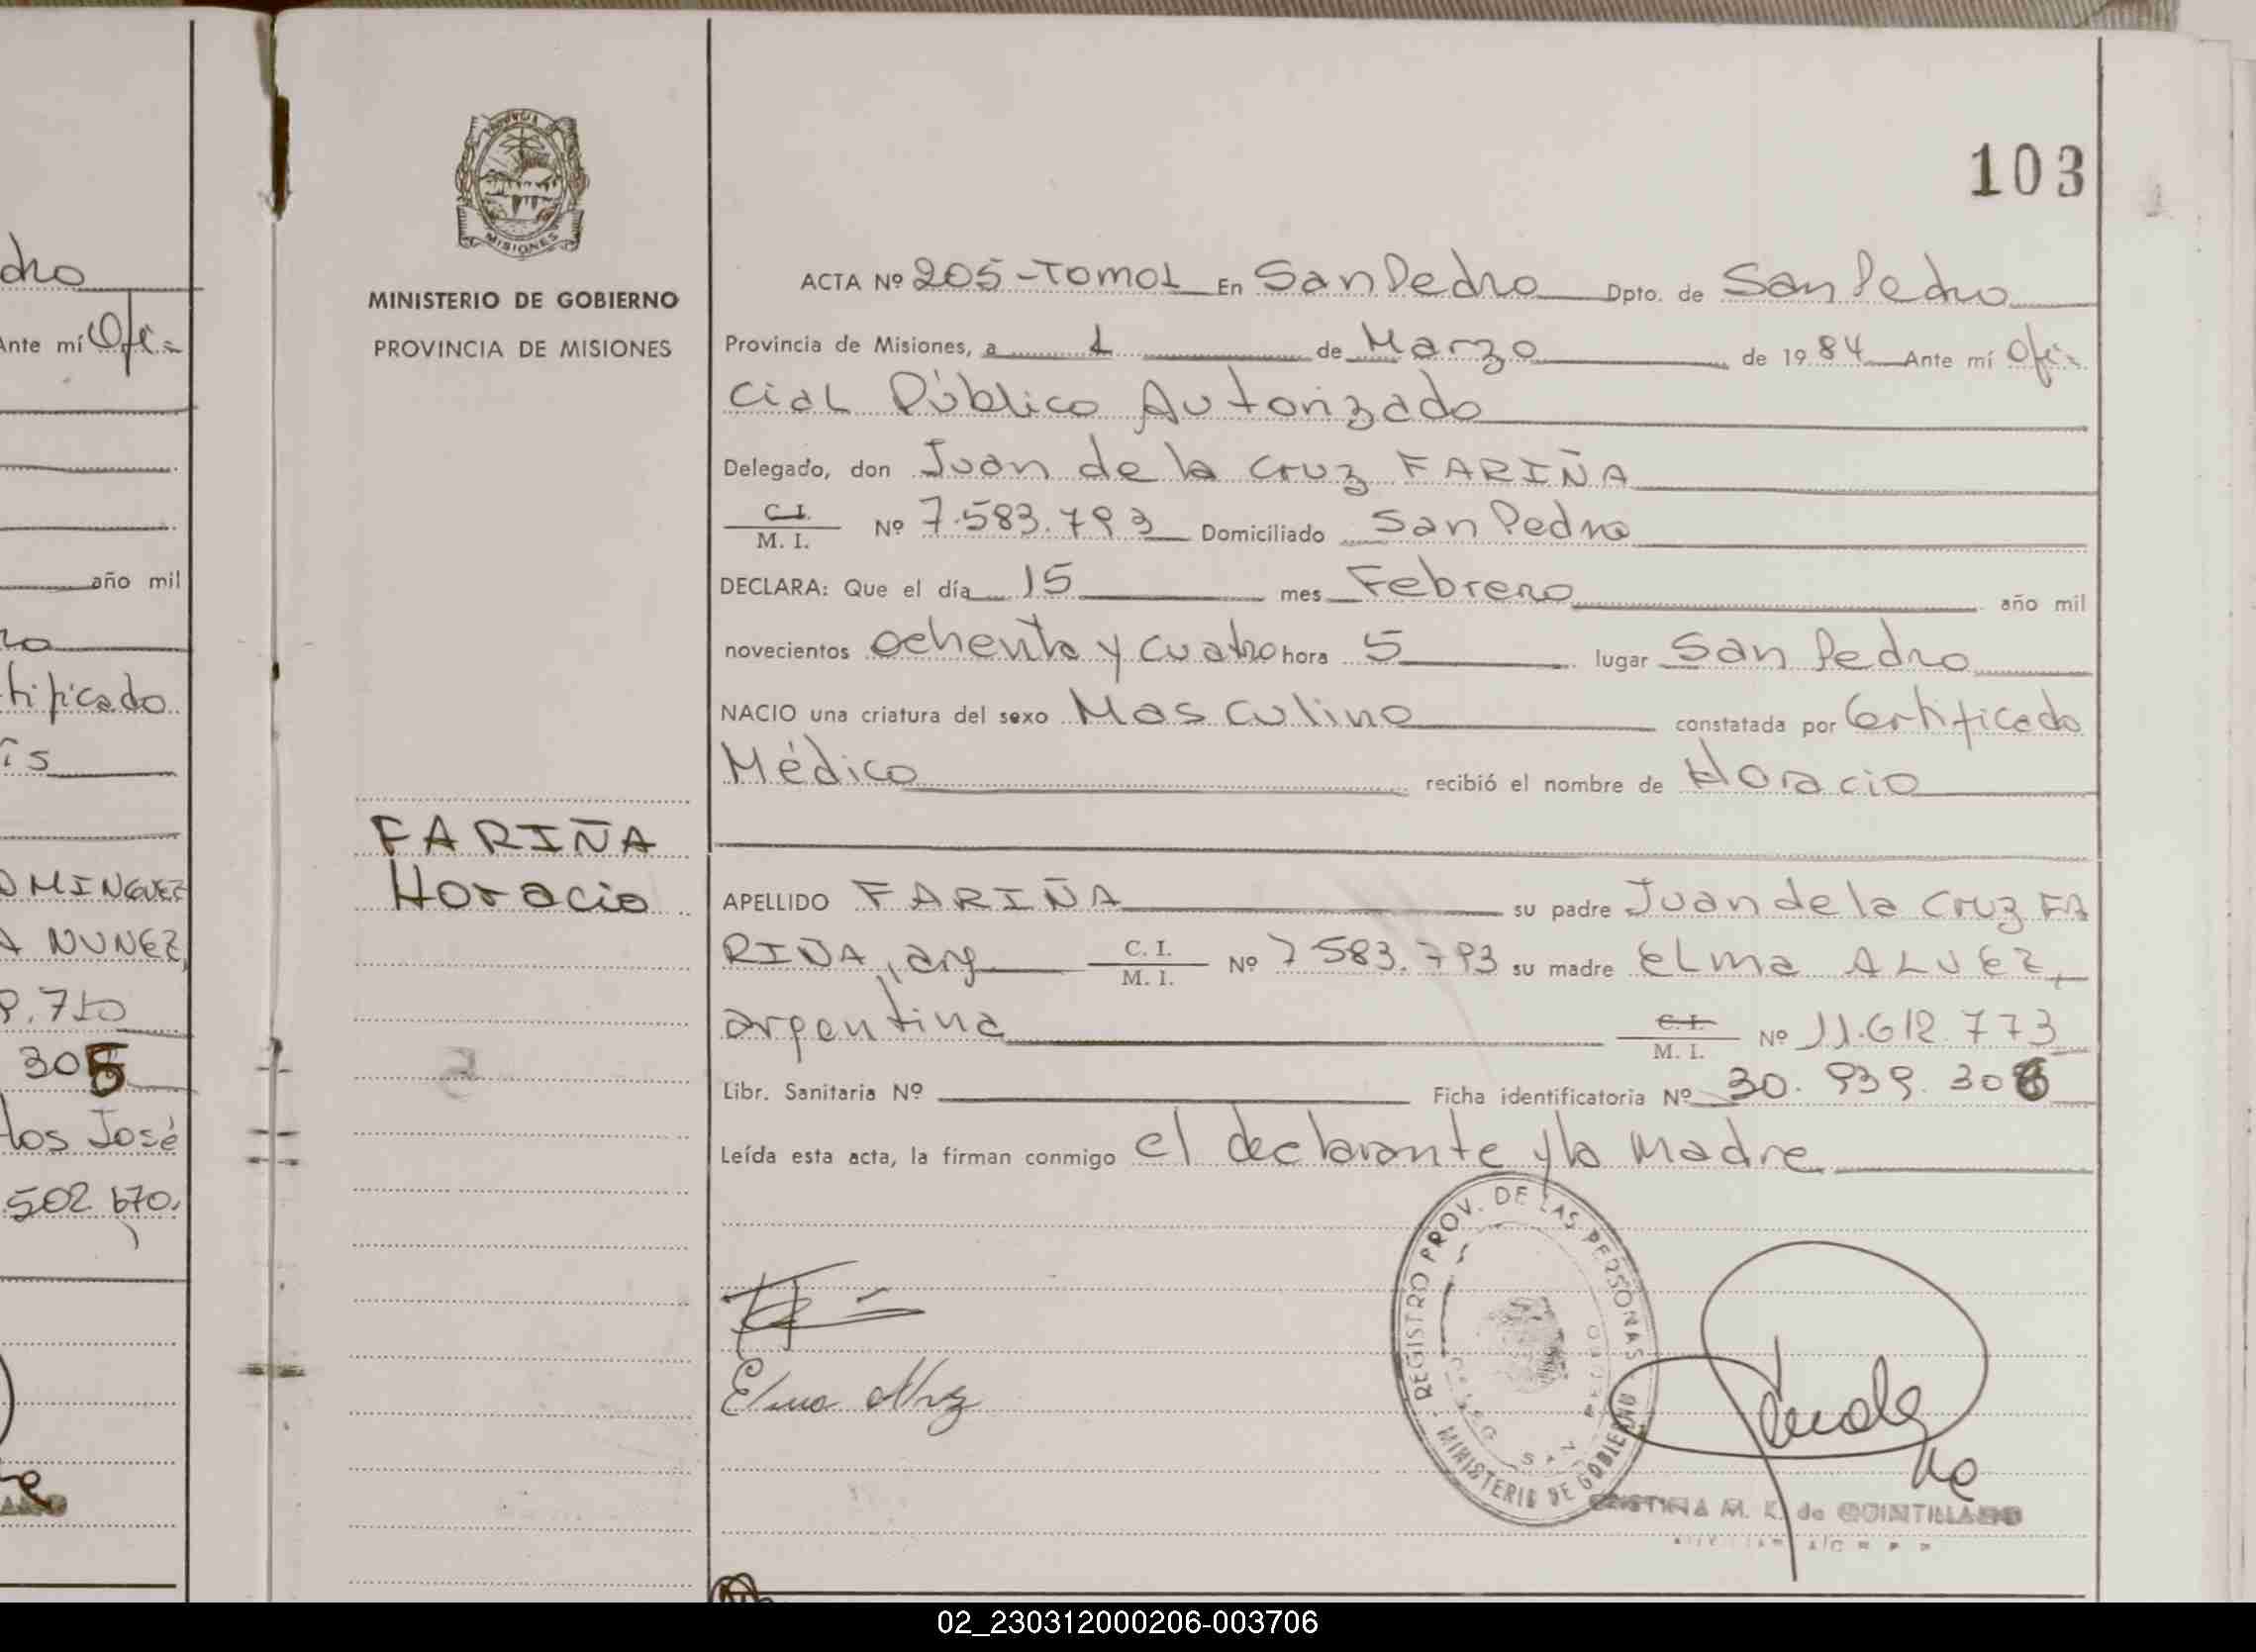 dro
Ante mí Ofi-
año mil
ro
tificado
ís
OMINGUEZ
A NUNEZ,
9.710
305
los José
502.670,
PROVINCIA
MISIONES
MINISTERIO DE GOBIERNO
PROVINCIA DE MISIONES
FARIÑA
Horacio
103
ACTA Nº 205-TOMO1 En San Pedro Dpto. de San Pedro
Provincia de Misiones, a 1 de Marzo de 1984 Ante mí Ofi-
cial Público Autorizado
Delegado, don Juan de la Cruz FARIÑA
C.I. M. I. Nº 7.583.793 Domiciliado San Pedro
DECLARA: Que el día 15 mes Febrero año mil
novecientos ochenta y cuatro hora 5 lugar San Pedro
NACIO una criatura del sexo Masculino constatada por Certificado
Médico recibió el nombre de Horacio
APELLIDO FARIÑA su padre Juan de la Cruz FA
RIÑA, arg C. I. M. I. Nº 7583.793 su madre Elma ALVEZ,
argentina C.I. M. I. Nº 11.612.773
Libr. Sanitaria Nº Ficha identificatoria Nº 30.939.306
Leída esta acta, la firman conmigo el declarante y la madre
REGISTRO PROV. DE LAS PERSONAS
MINISTERIO DE GOBIERNO
Elma Alvez
CRISTINA M. K. de QUINTILLANO
02_230312000206-003706